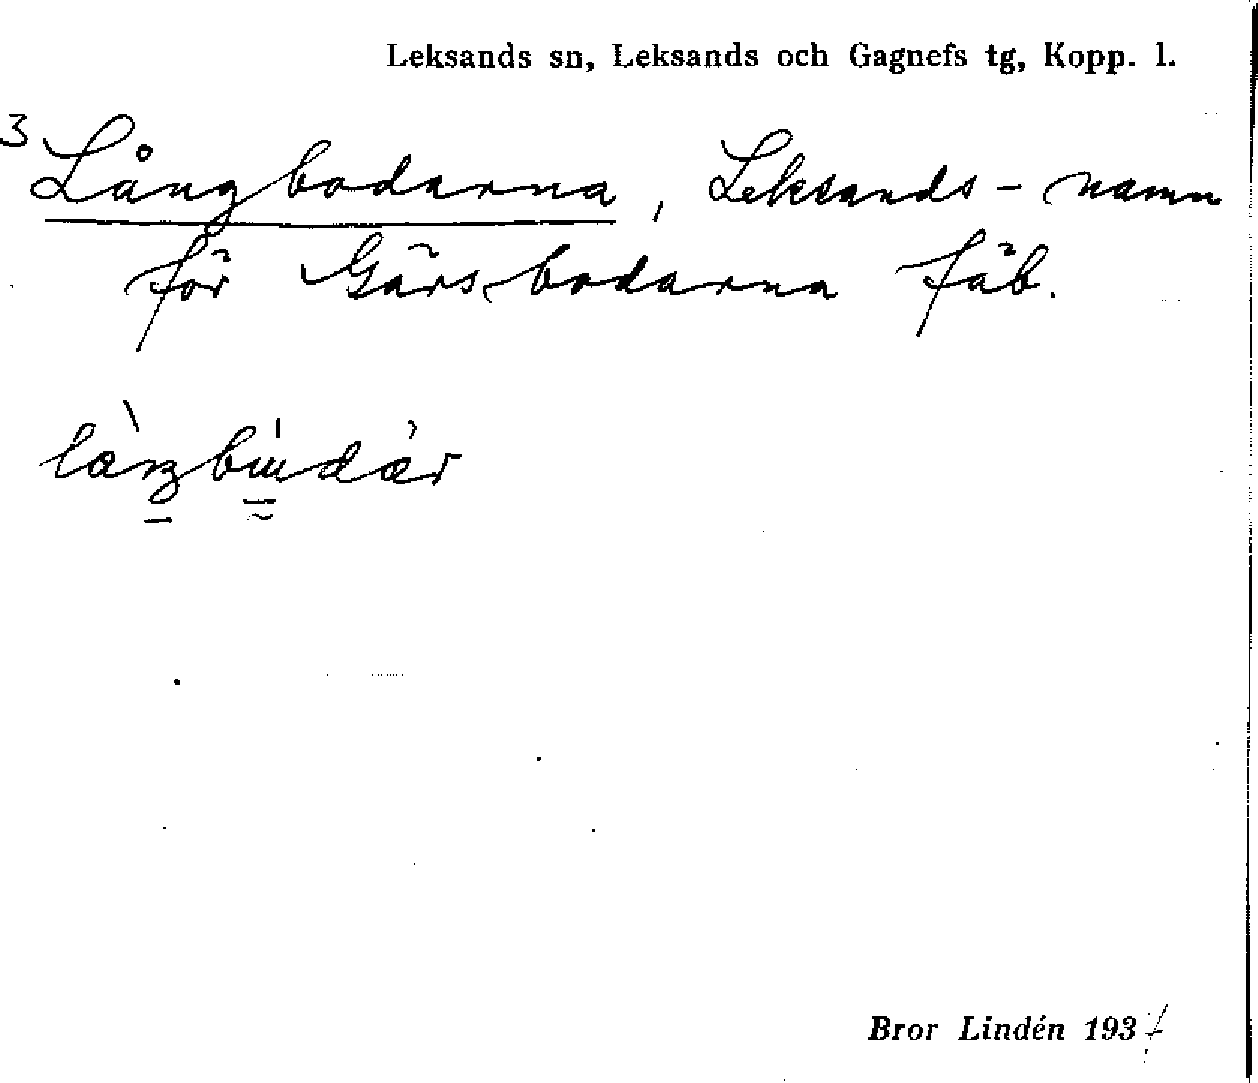 Leksands sn, Leksands och Gagnefs tg, Kopp. l.
3 Långbodarna, Leksands-namn
för Gärsbodarna fäb.
Bror Lindén 193